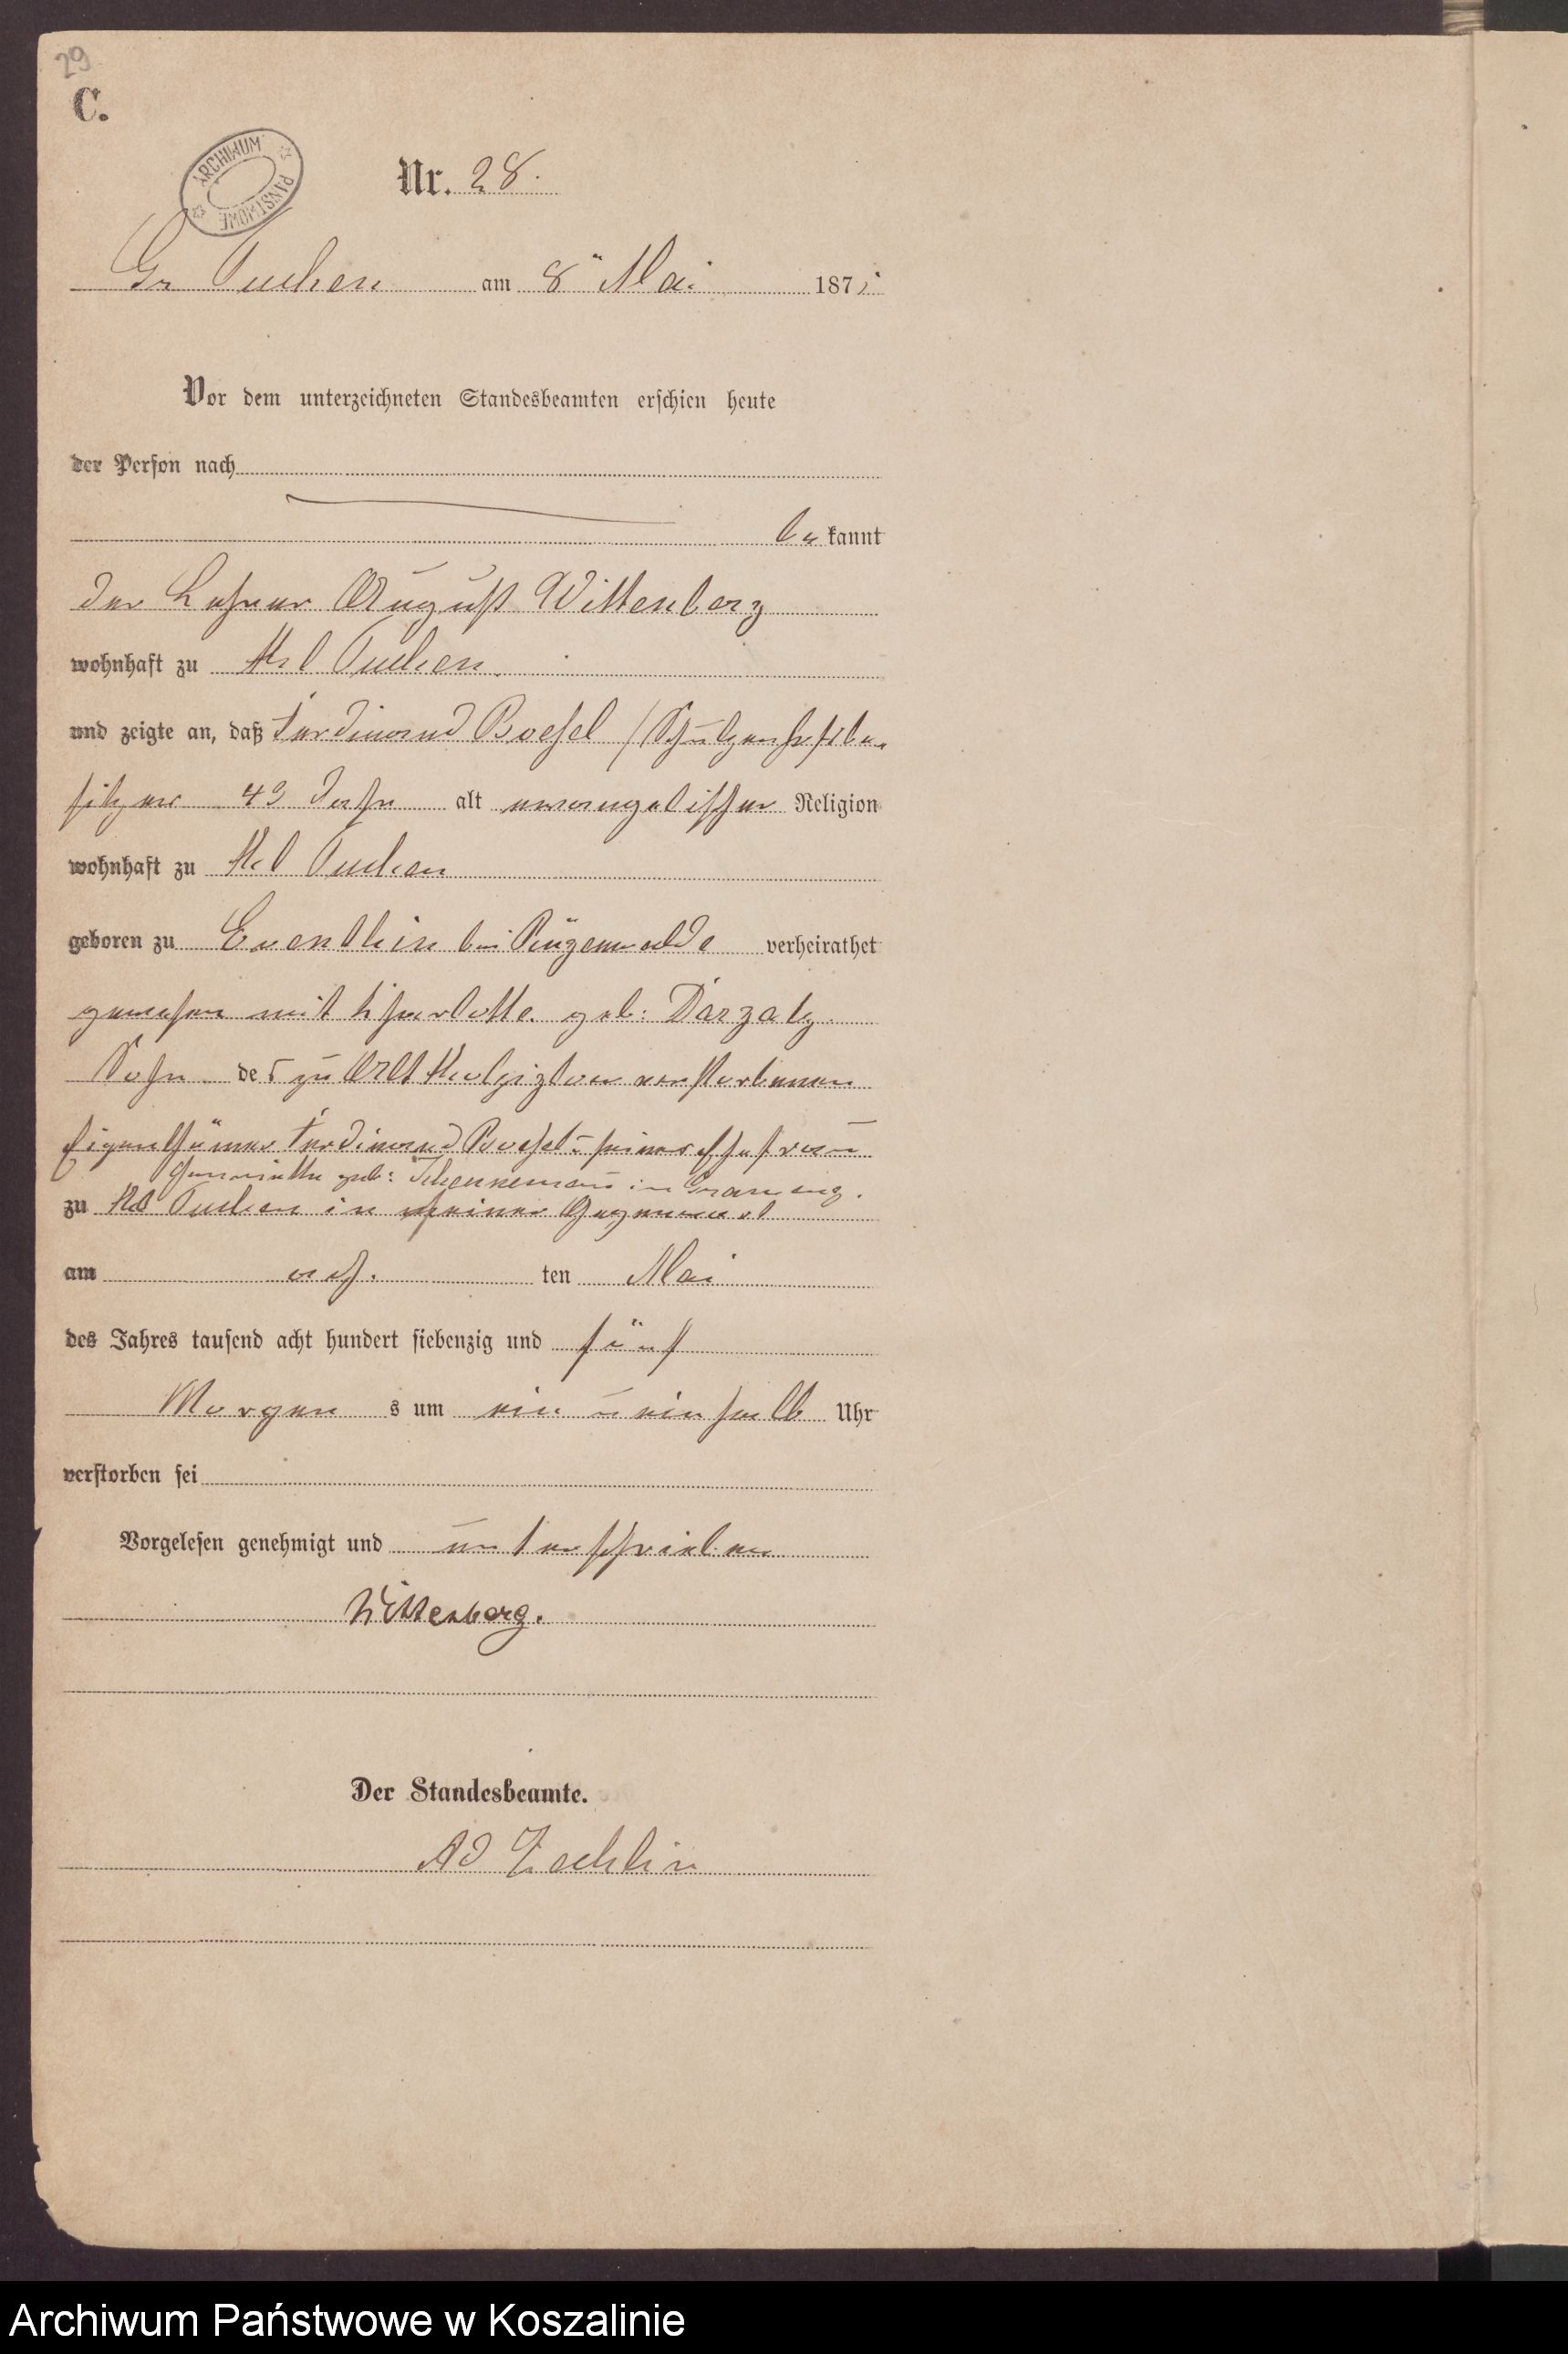 29
C.
ARCHIWUM PAŃSTWOWE
Nr. 28.
Gr Tuchen am 8" Mai 1875
Vor dem unterzeichneten Standesbeamten erschien heute
der Person nach
be kannt
der Lehrer August Wittenberg
wohnhaft zu Kl Tuchen
und zeigte an, daß Ferdinand Boesel / Schulzenhofsbe-
sitzer 43 Jahr alt evangelischer Religion
wohnhaft zu Kl Tuchen
geboren zu Eventhin bei Rügenwalde verheirathet
gewesen mit geb: Darzatz
Sohn des zu Alt verstorbenen
Eigenthümer Ferdinand Boesel u seiner Ehefrau
Henriette geb: in
zu Kl Tuchen in seiner Gegenwart
am acht ten Mai
des Jahres tausend acht hundert siebenzig und fünf
Morgen s um ein u ein halb Uhr
verstorben sei
Vorgelesen genehmigt und unterschrieben
Wittenberg.
Der Standesbeamte.
Ad Zechlin
Archiwum Państwowe w Koszalinie